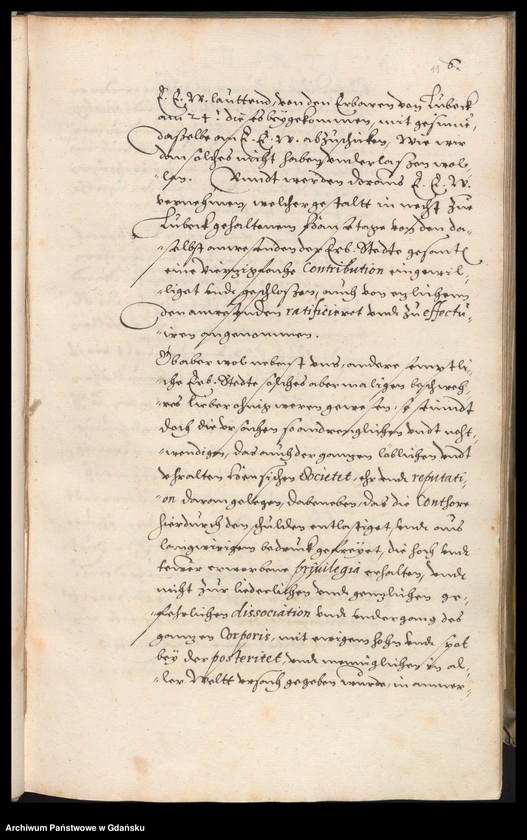 11 6.
E. E. W. lauttend, von den Erbaren von Lubeck
am 24t. dieses beygekommen, mit gesinne,
dasselbe an E. E. W. abzuschicken, Wie wir
dan solches nicht haben underlassen wol-
len. Undt werden daraus E. E. W.
vernehmen, welcher gestaltt in nechst zue
Lubeck gehaltenem Hansetage von den da-
selbst anwesenden der Erb. Stedte gesandten
eine Contribution eingewil-
liget undt geschlossen, auch von etzlichenn
den anwesenden ratificieret undt zu effectu-
iren angenommen.
Ob aber wol nebenst uns, andere semptli-
che Erb. Stedte solches abermaligen beschweh-
res lieber ohnig weren gewesen, so seindt
doch die ursachen so andrenglichen undt noht-
wendigen, das auch der gantzen loblichen undt
uhralten Hensischen Societet, ehr undt reputati-
on daran gelegen, dabeneben, das die Conthore
hierdurch den schulden entlastiget, undt aus
langwirigen bedruck gefreyet, die hoch undt
tewer erworbene privilegia erhalten, undt
nicht zur liederlichen undt gentzlichen ge-
fehrlichen dissociation undt undergang des
gantzen Corporis, mit ewigem hohn undt spot
bey der posteritet, undt menniglichen in al-
ler Weltt ursach gegeben wurde, in anmer-
Archiwum Państwowe w Gdańsku